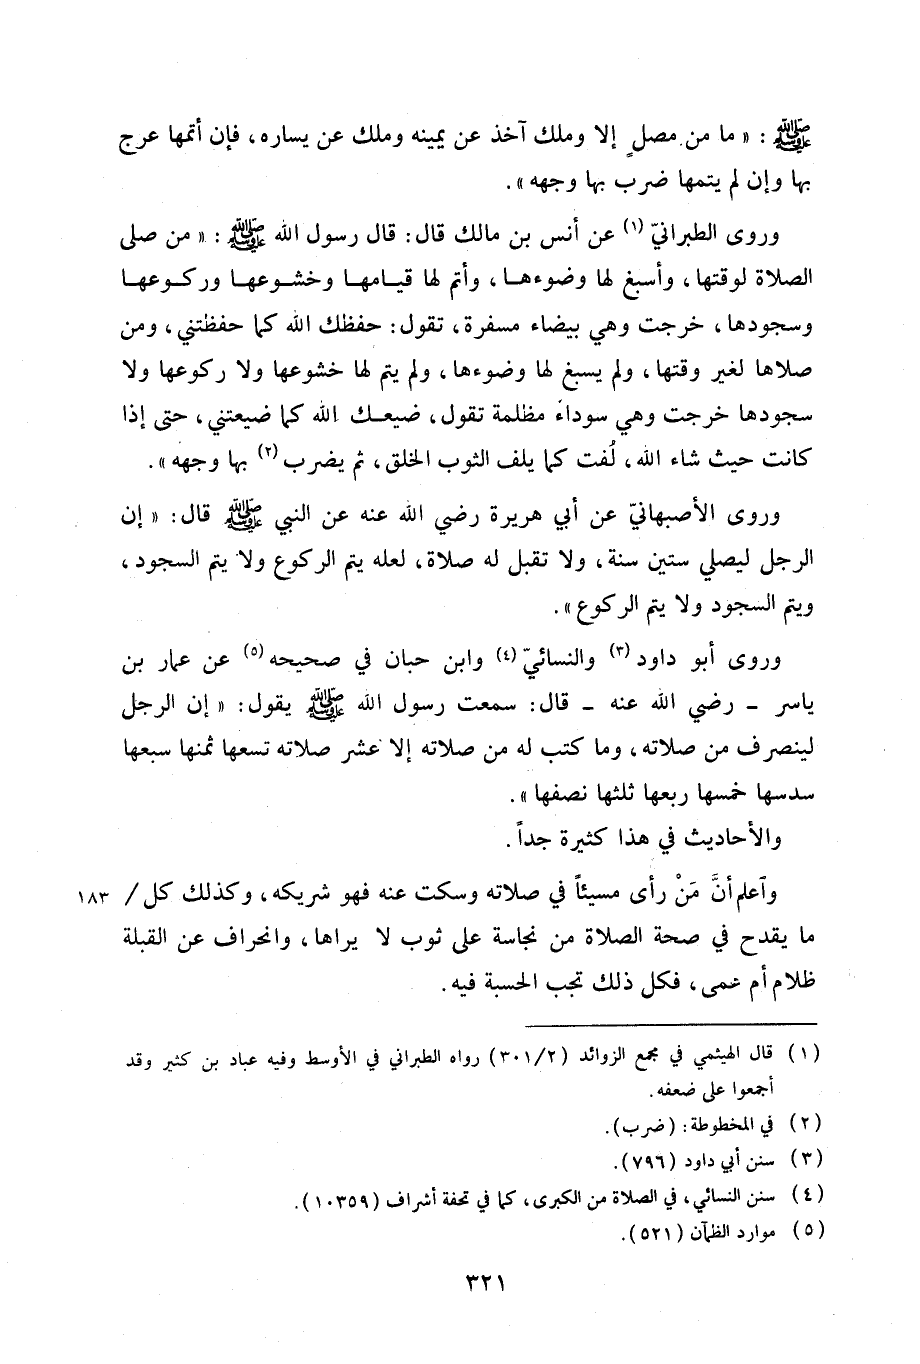 ﷺ : « ما من مصلٍ إلا وملك آخذ عن يمينه وملك عن يساره، فإن أتمها عرج
بها وإن لم يتمها ضرب بها وجهه».
وروى الطبرانيّ (١) عن أنس بن مالك قال: قال رسول الله ﷺ : « من صلى
الصلاة لوقتها، وأسبغ لها وضوءهـا، وأتم لها قيـامهـا وخشـوعهـا وركـوعهـا
وسجودها، خرجت وهي بيضاء مسفرة، تقول: حفظك الله كما حفظتني، ومن
صلاها لغير وقتها، ولم يسبغ لها وضوءها، ولم يتم لها خشوعها ولا ركوعها ولا
سجودها خرجت وهي سوداء مظلمة تقول، ضيعـك الله كما ضيعتني، حتى إذا
كانت حيث شاء الله، لُفت كما يلف الثوب الخلق، ثم يضرب (٢) بها وجهه».
وروى الأصبهانيّ عن أبي هريرة رضي الله عنه عن النبي ﷺ قال: « إن
الرجل ليصلي ستين سنة، ولا تقبل له صلاة، لعله يتم الركوع ولا يتم السجود،
ويتم السجود ولا يتم الركوع».
وروى أبو داود (٣) والنسائيّ (٤) وابن حبان في صحيحه (٥) عن عمار بن
ياسر - رضي الله عنه - قال: سمعت رسول الله ﷺ يقول: « إن الرجل
لينصرف من صلاته، وما كتب له من صلاته إلا عشر صلاته تسعها ثمنها سبعها
سدسها خمسها ربعها ثلثها نصفها».
والأحاديث في هذا كثيرة جداً.
وآعلم أنَّ مَنْ رأى مسيئاً في صلاته وسكت عنه فهو شريكه، وكذلك كل/ ١٨٣
ما يقدح في صحة الصلاة من نجاسة على ثوب لا يراها، وانحراف عن القبلة
ظلام أم عمى، فكل ذلك تجب الحسبة فيه.
(١) قال الهيثمي في مجمع الزوائد (٣٠١/٢) رواه الطبراني في الأوسط وفيه عباد بن كثير وقد
أجمعوا على ضعفه.
(٢) في المخطوطة: (ضرب).
(٣) سنن أبي داود (٧٩٦).
(٤) سنن النسائي، في الصلاة من الكبرى، كما في تحفة أشراف (١٠٣٥٩).
(٥) موارد الظمآن (٥٢١).
٣٢١